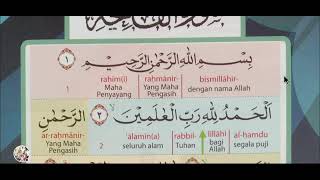 بِسْمِ اللّٰهِ الرَّحْمٰنِ الرَّحِيْمِ ١
rahīm(i) rahmānir- bismillāhir-
Maha Penyayang Yang Maha Pengasih dengan nama Allah
1
اَلْحَمْدُ لِلّٰهِ رَبِّ الْعٰلَمِيْنَ ٢ الرَّحْمٰنِ
ar-raḥmānir- 'ālamīn(a) rabbil- lillāhi al-ḥamdu
Yang Maha Pengasih 2 seluruh alam Tuhan bagi Allah segala puji